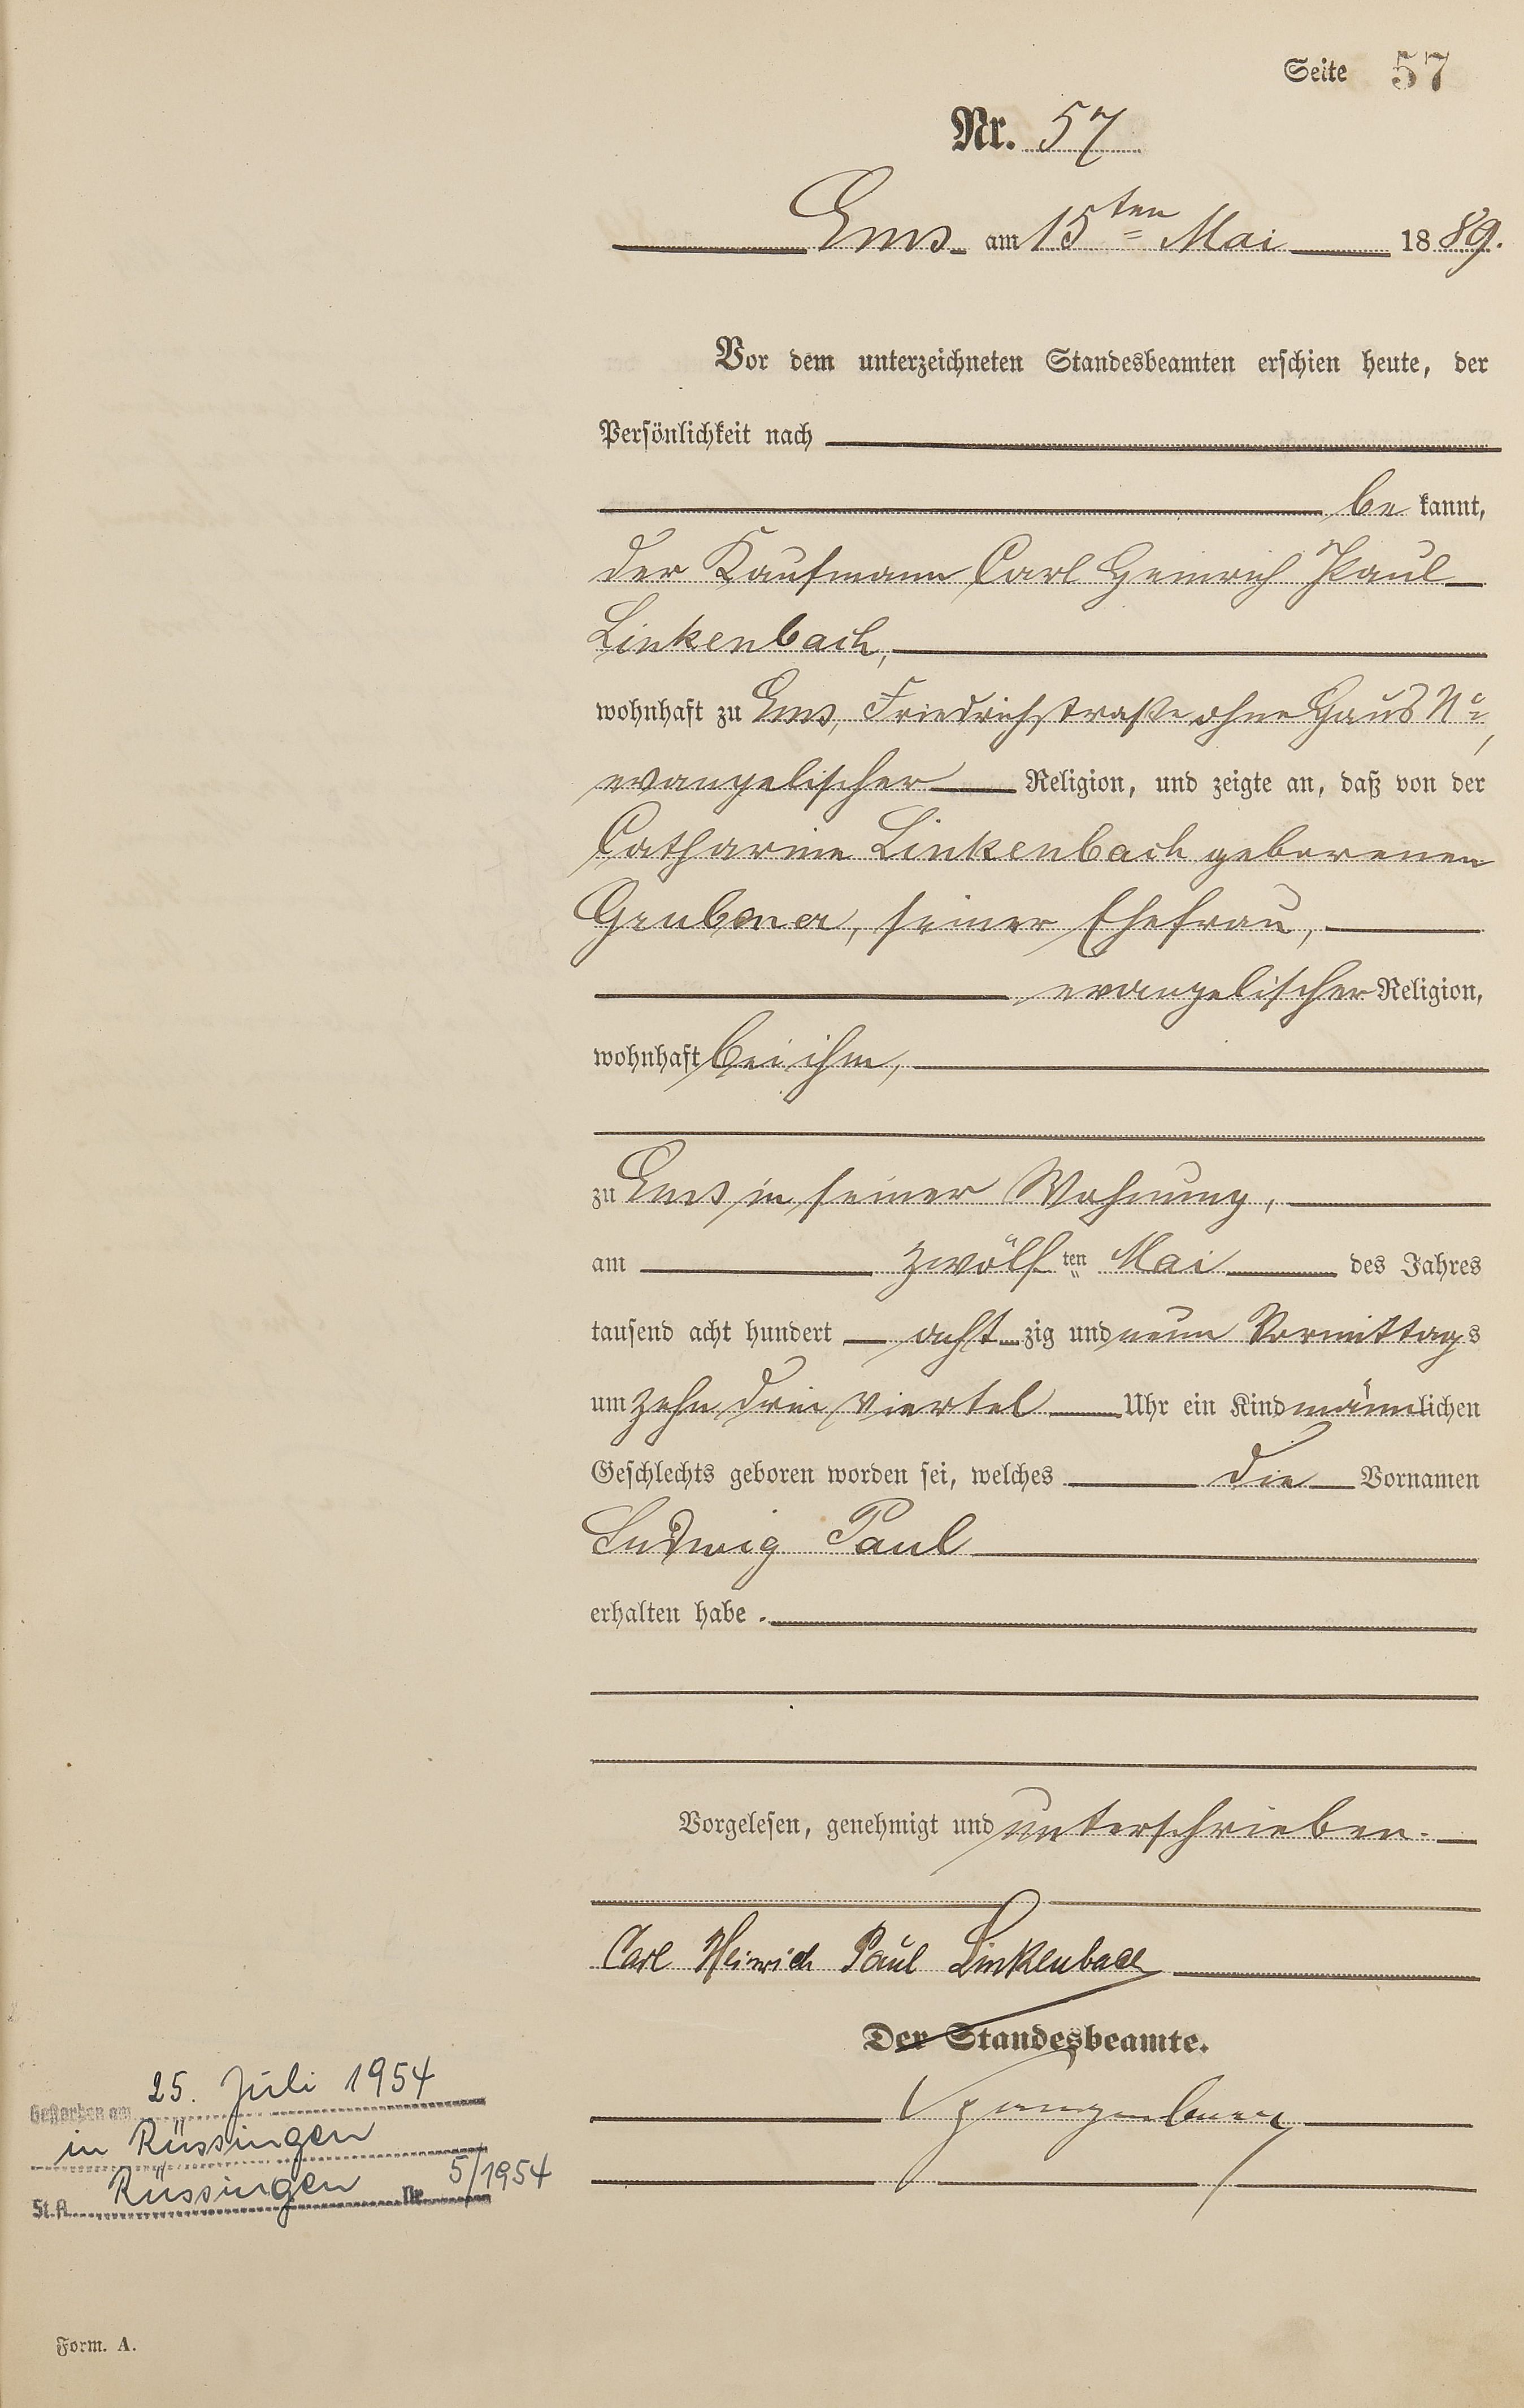 Seite 57
Nr. 57
Ems am 15ten Mai 1889.
Vor dem unterzeichneten Standesbeamten erschien heute, der
Persönlichkeit nach
bekannt,
der Kaufmann Carl Heinrich Paul
Linkenbach,
wohnhaft zu Ems, Friedrichstraße ohne Haus No,
evangelischer Religion, und zeigte an, daß von der
Catharine Linkenbach geborenen
seiner Ehefrau,
evangelischer Religion,
wohnhaft bei ihm,
zu Ems in seiner Wohnung,
am zwölften Mai des Jahres
tausend acht hundert achtzig und neun Vormittags
um zehn drei viertel Uhr ein Kind männlichen
Geschlechts geboren worden sei, welches die Vornamen
Ludwig Paul
erhalten habe.
Vorgelesen, genehmigt und unterschrieben.
Carl Heinrich Paul Linkenbach
Der Standesbeamte.
Gestorben am 25. Juli 1954
in Rüssingen
St.A. Rüssingen Nr. 5/1954
Form. A.